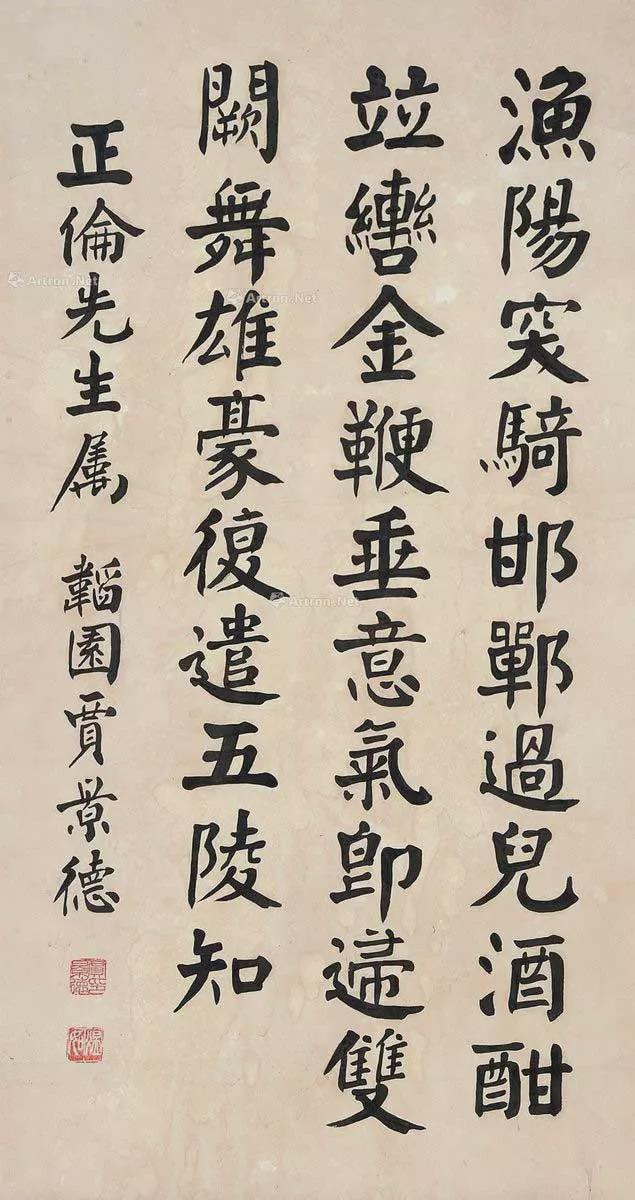 漁陽突騎邯鄲過兒酒酣
竝轡金鞭垂意氣卽歸雙
闕舞雄豪復遣五陵知
正倫先生属 韜園賈景德
Artron.Net
Artron.Net
Artron.Net